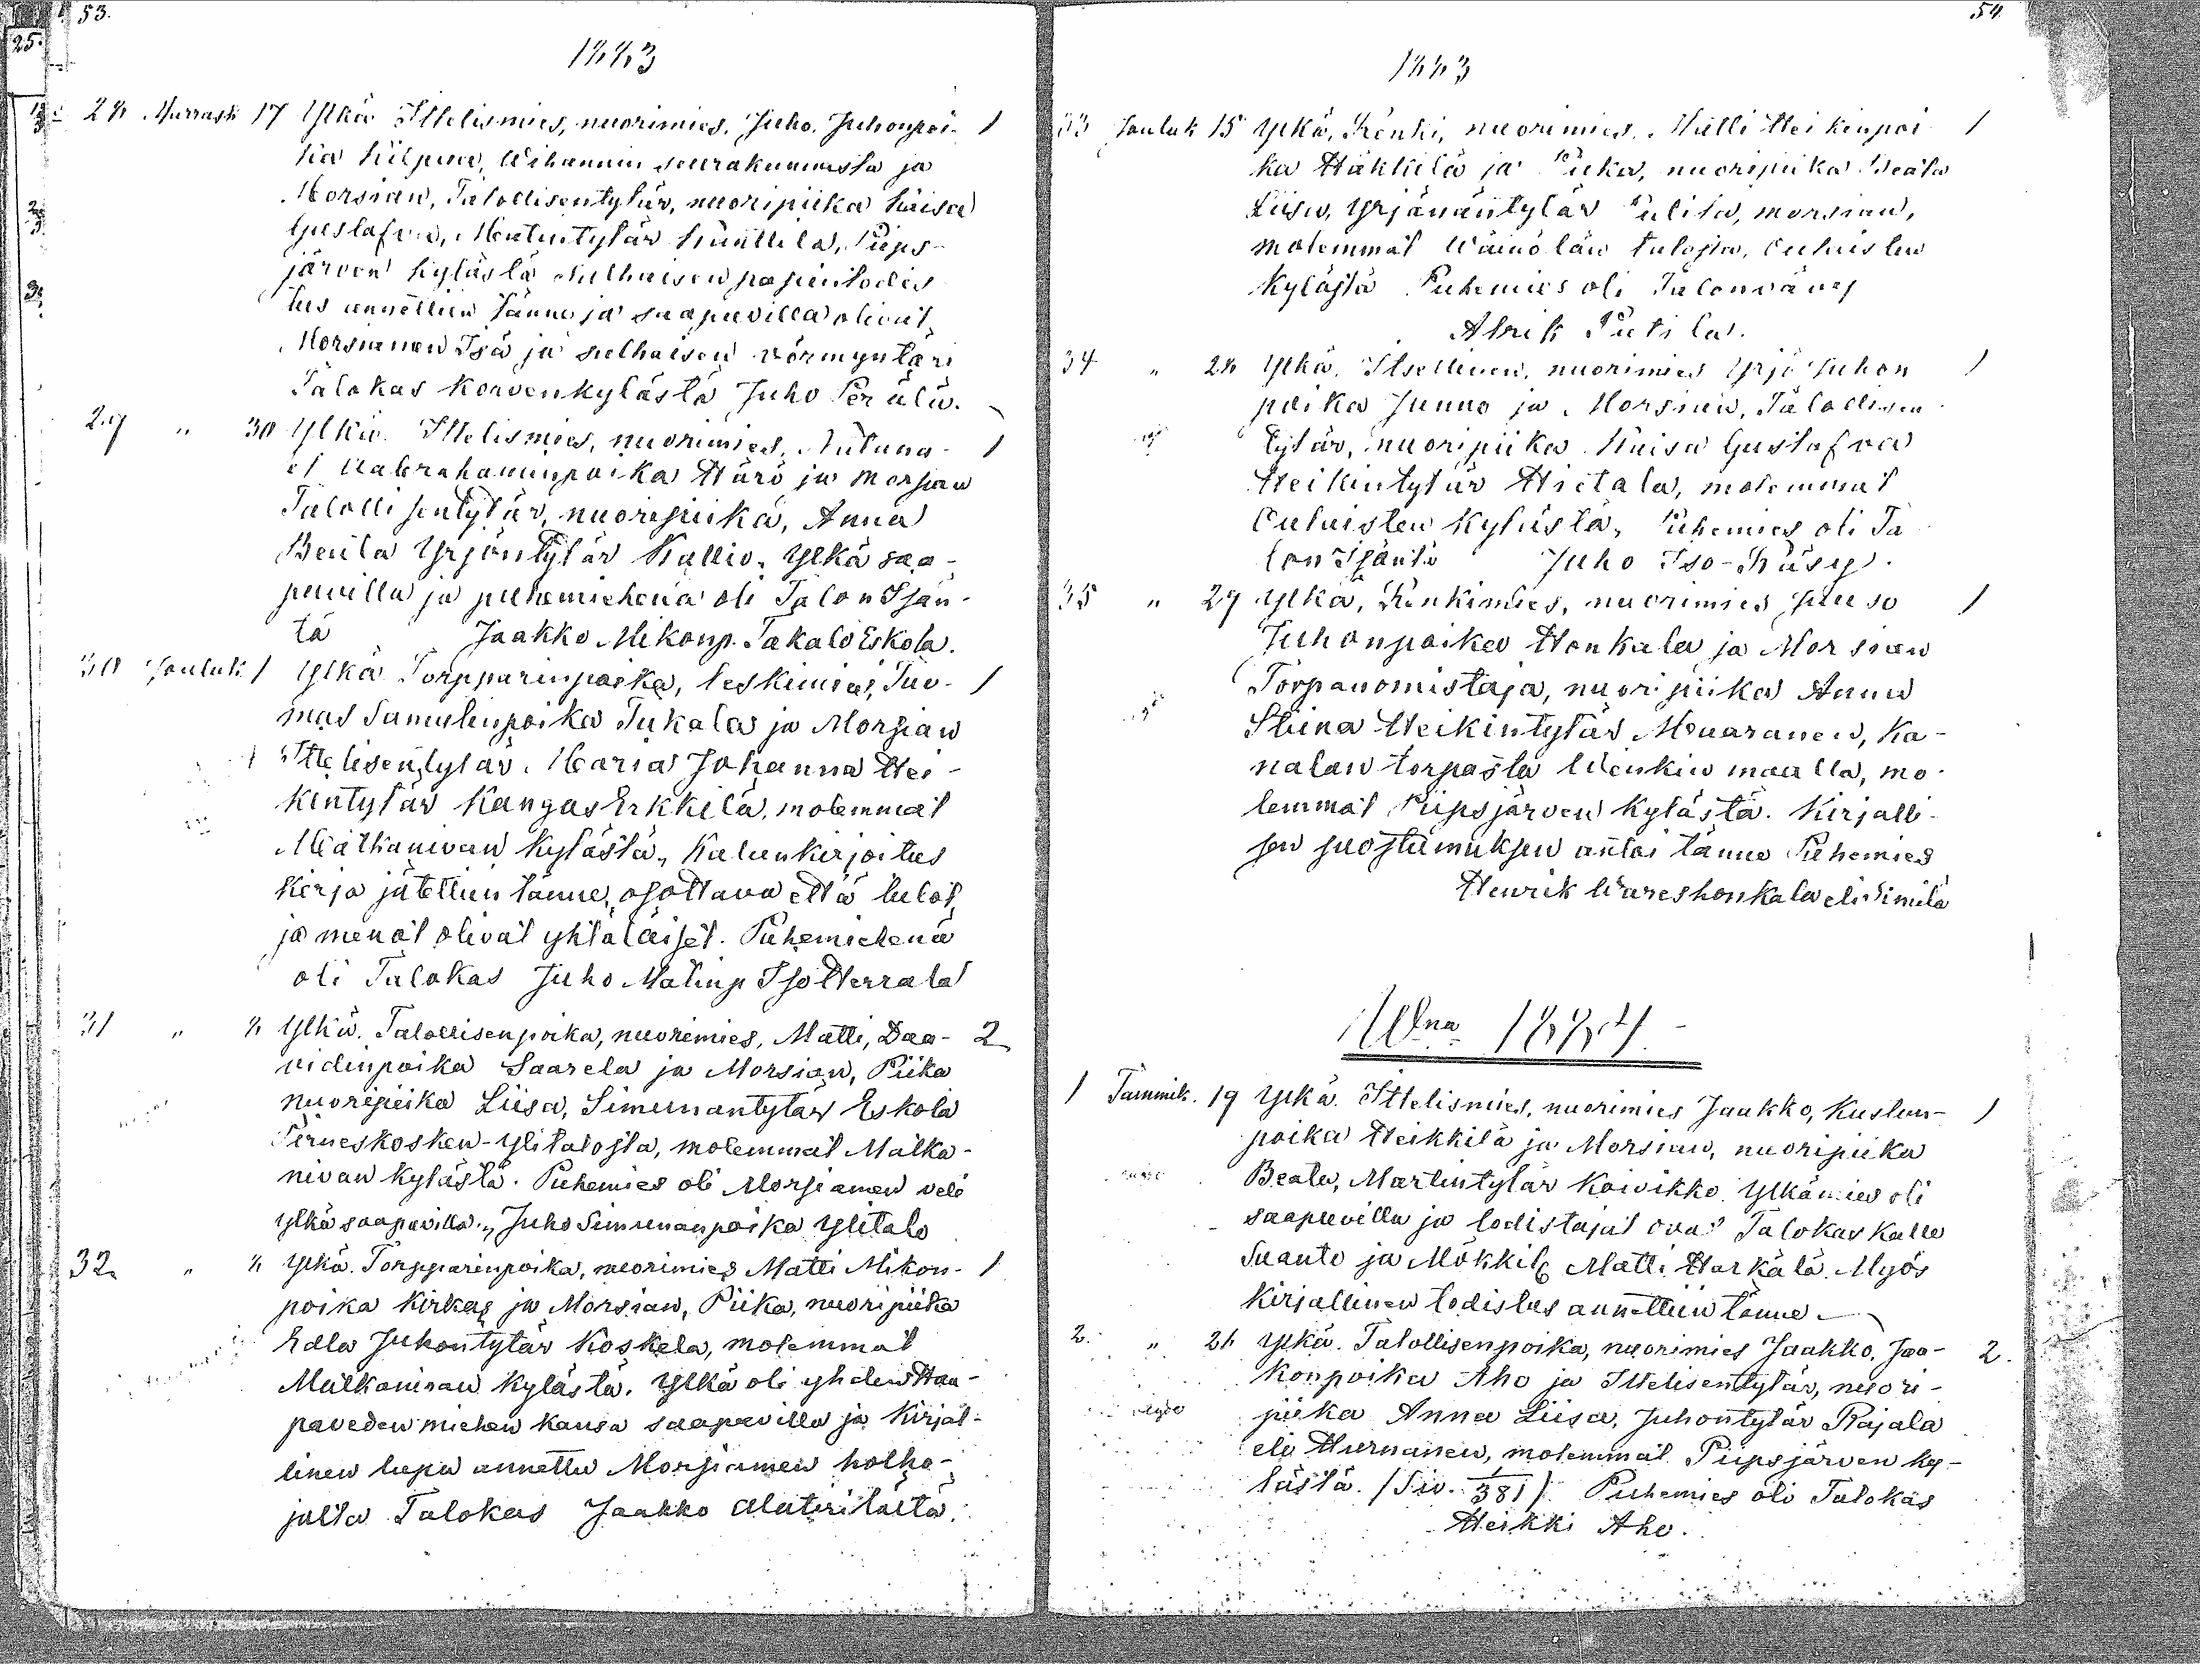 53.
1883
28 Marrask 17 Ylkä Ittelismies, nuorimies, Juho Juhonpoi- 1
ka Kilpua, Wihannin seurakunnasta ja
Morsian, Talollisentytär, nuoripiika Kaisa
Gustafva, Matintytär Knuttila, Piips-
järven kylästä Sulhaisen papintodis
tus annettiin tänne ja saapuvilla olivat
Morsiamen Isä ja sulhaisen vörmyntäri
Talokas Korvenkylästä Juho Perälä.
29 " 30 Ylkä. Ittelismies, nuorimies, Natana- 1
el Aabrahaminpoika Härö ja Morsian
Talollisentytär, nuoripiika, Anna
Beata Yrjöntytär Kallio. Ylkä saa-
puvilla ja puhemiehenä oli Talon Isän-
tä Jaakko Mikonp. Takalo Eskola.
30 Jouluk 1 Ylkä Torpparinpoika, leskimies, Tuo- 1
mas Samulinpoika Tukala ja Morsian
Ittelisentytär. Maria Johanna Hei-
kintytär Kangas Erkkilä, molemmat
Matkanivan kylästä, Kalunkirjoitus
kirja jätettiin tänne, osottava että tulot
ja menot olivat yhtäläiset. Puhemiehenä
oli Talokas Juho Matinp Iso Herrala
31 " 8 Ylkä. Talollisenpoika, nuorimies, Matti, Daa- 2
vidinpoika Saarela ja Morsian, Piika
nuoripiika Liisa, Simunantytär Eskola
Pirneskosken-Ylitalosta, molemmat Matka-
nivan kylästä. Puhemies oli Morsiamen veli
Ylkä saapuvilla., Juho Simunanpoika Ylitalo
32 " 8 Ylkä. Torpparinpoika, nuorimies Matti Mikon- 1
poika Kirkas ja Morsian, Piika, nuoripiika
Edla Juhontytär Koskela, molemmat
Matkanivan kylästä. Ylkä oli yhden Haa-
paveden miehen kansa saapuvilla ja kirjal-
linen lupa annettu Morsiamen holho-
jalta Talokas Jaakko Alatirilältä.
54
1883
33 Jouluk 15 Ylkä, Renki, nuorimies, Matti Heikinpoi 1
ka Häkkilä ja Piika, nuoripiika Beata
Liisa, Yrjänäntytär, morsian,
molemmat Wäinölän talosta, Oulaisten
kylästä Puhemies oli Talonvävy
Abrik Pietilä.
34 " 28 Ylkä. Itsellinen, nuorimies Yrjö Juhon 1
poika Junno ja Morsian, Talollisen
tytär, nuoripiika Kaisa Gustafva
Heikintytär Hietala, molemmat
Oulaisten kylästä, Puhemies oli Ta
lon Isäntä Juho Iso-Räsy.
35 " 29 Ylkä, Renkimies, nuorimies 1
Juhonpoika Honkala ja Morsian
Torpanomistaja, nuoripiika Anna
Stiina Heikintytär Muuranen, Ka-
nalan torpasta maalla, mo-
lemmat Piipsjärven kylästä. Kirjalli-
sen suostumuksen antoi tänne Puhemies
Henrik Wareshonkala eli Similä
Wna 1884
1 Tammik. 19 Ylkä. Ittelismies, nuorimies Jaakko, Kustun- 1
poika Heikkilä ja Morsian, nuoripiika
Beata, Martintytär Koivikko. Ylkämies oli
saapuvilla ja todistajat ovat Talokas Kalle
Suanto ja Mökkil. Matti Harkälä. Myös
kirjallinen todistus annettiin tänne
2. " 26 Ylkä. Talollisenpoika, nuorimies Jaakko, Jaa- 2.
konpoika Aho ja Ittelisentytär, nuori-
piika Anna Liisa, Juhontytär Rajala
eli Hurnanen, molemmat Piipsjärven ky-
lästä. (Siv. 381) Puhemies oli Talokas
Heikki Aho.